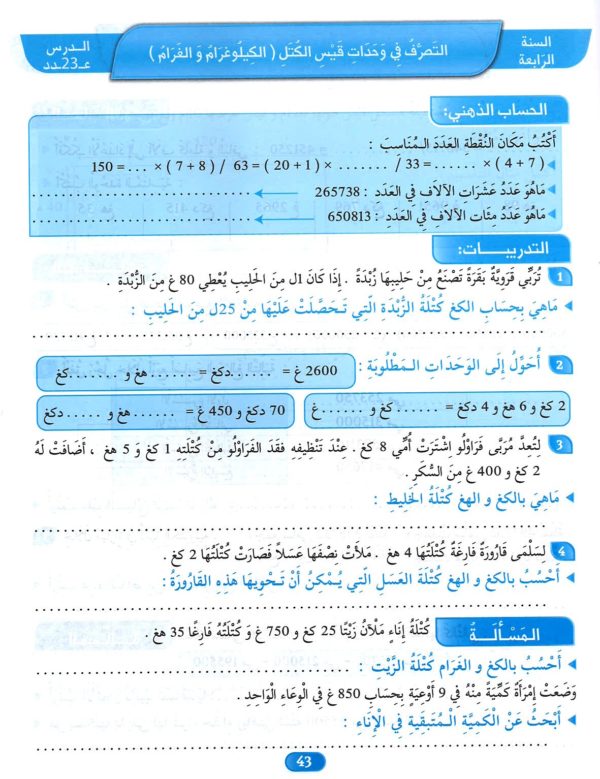 السنة الرّابعة
التصرّفُ فِي وَحَدَاتِ قَيْسِ الكُتَلِ ( الكِيلُوغرَامُ وَ الغرَامُ )
الـدرس عـ23ـدد
الحساب الذهني:
أَكْتُبُ مَكَانَ النُقْطَةِ العَدَدَ المُنَاسبَ :
150 = ... × ( 7 + 8 ) / 63 = ( 20 + 1 ) × ....... / 33 = ...... × ( 7 + 4 )
مَاهُوَ عَدَدُ عَشَرَاتِ الآلاَفِ فِي العَدَدِ : 265738
مَاهُوَ عَدَدُ مِئَاتِ الآلاَفِ فِي العَدَدِ : 650813
التدريبات:
1 تُرَبِّي قَرَوِيَّةٌ بَقَرَةً تَصْنَعُ مِنْ حَلِيبِهَا زُبْدَةً . إِذَا كَانَ 1ل مِنَ الحَلِيبِ يُعْطِي 80 غ مِنَ الزُّبْدَةِ .
مَاهِيَ بِحِسَابِ الكغ كُتْلَةُ الزُّبْدَةِ الَّتِي تَحَصَّلَتْ عَلَيْهَا مِنْ 25ل مِنَ الحَلِيبِ :
2 أُحَوِّلُ إِلَى الوَحَدَاتِ المَطْلُوبَةِ :
2600 غ = .......دكغ = .......هغ و .......كغ
2 كغ و 6 هغ و 4 دكغ = ....... كغ و .......غ
70 دكغ و 450 غ = ...... هغ و ...... دكغ
3 لِتُعِدَّ مُرَبَّى فَرَاوْلُو اِشْتَرَتْ أُمِّي 8 كغ . عِنْدَ تَنْظِيفِهِ فقَدَ الفَرَاوْلُو مِنْ كُتْلَتِهِ 1 كغ وَ 5 هغ ، أَضَافَتْ لَهُ
2 كغ و 400 غ مِنَ السُّكَّرِ .
مَاهِيَ بالكغ و الهغ كُتْلَةُ الخَلِيطِ :
4 لِسَلْمَى قَارُورَةٌ فَارِغَةٌ كُتْلَتُهَا 4 هغ . مَلأَتْ نِصْفَهَا عَسَلاً فَصَارَتْ كُتْلَتُهَا 2 كغ .
أَحْسُبُ بالكغ و الهغ كُتْلَةَ العَسَلِ الَّتِي يُمْكِنُ أَنْ تَحْوِيهَا هَذِهِ القَارُورَةُ :
المَسْأَلَـةُ
كُتْلَةُ إِنَاءٍ مَلآنُ زَيْتًا 25 كغ و 750 غ وَ كُتْلَتُهُ فَارِغًا 35 هغ .
أَحْسُبُ بالكغ و الغرَام كُتْلَةَ الزَّيْتِ :
وَضَعَتْ إِمْرَأَةٌ كَمِّيَّةً مِنْهُ فِي 9 أَوْعِيَةٍ بِحِسَابِ 850 غ فِي الوِعَاءِ الوَاحِدِ .
أَبْحَثُ عَنْ الكَمِيَّةِ المُتَبَقِيَةِ فِي الإِنَاءِ :
43